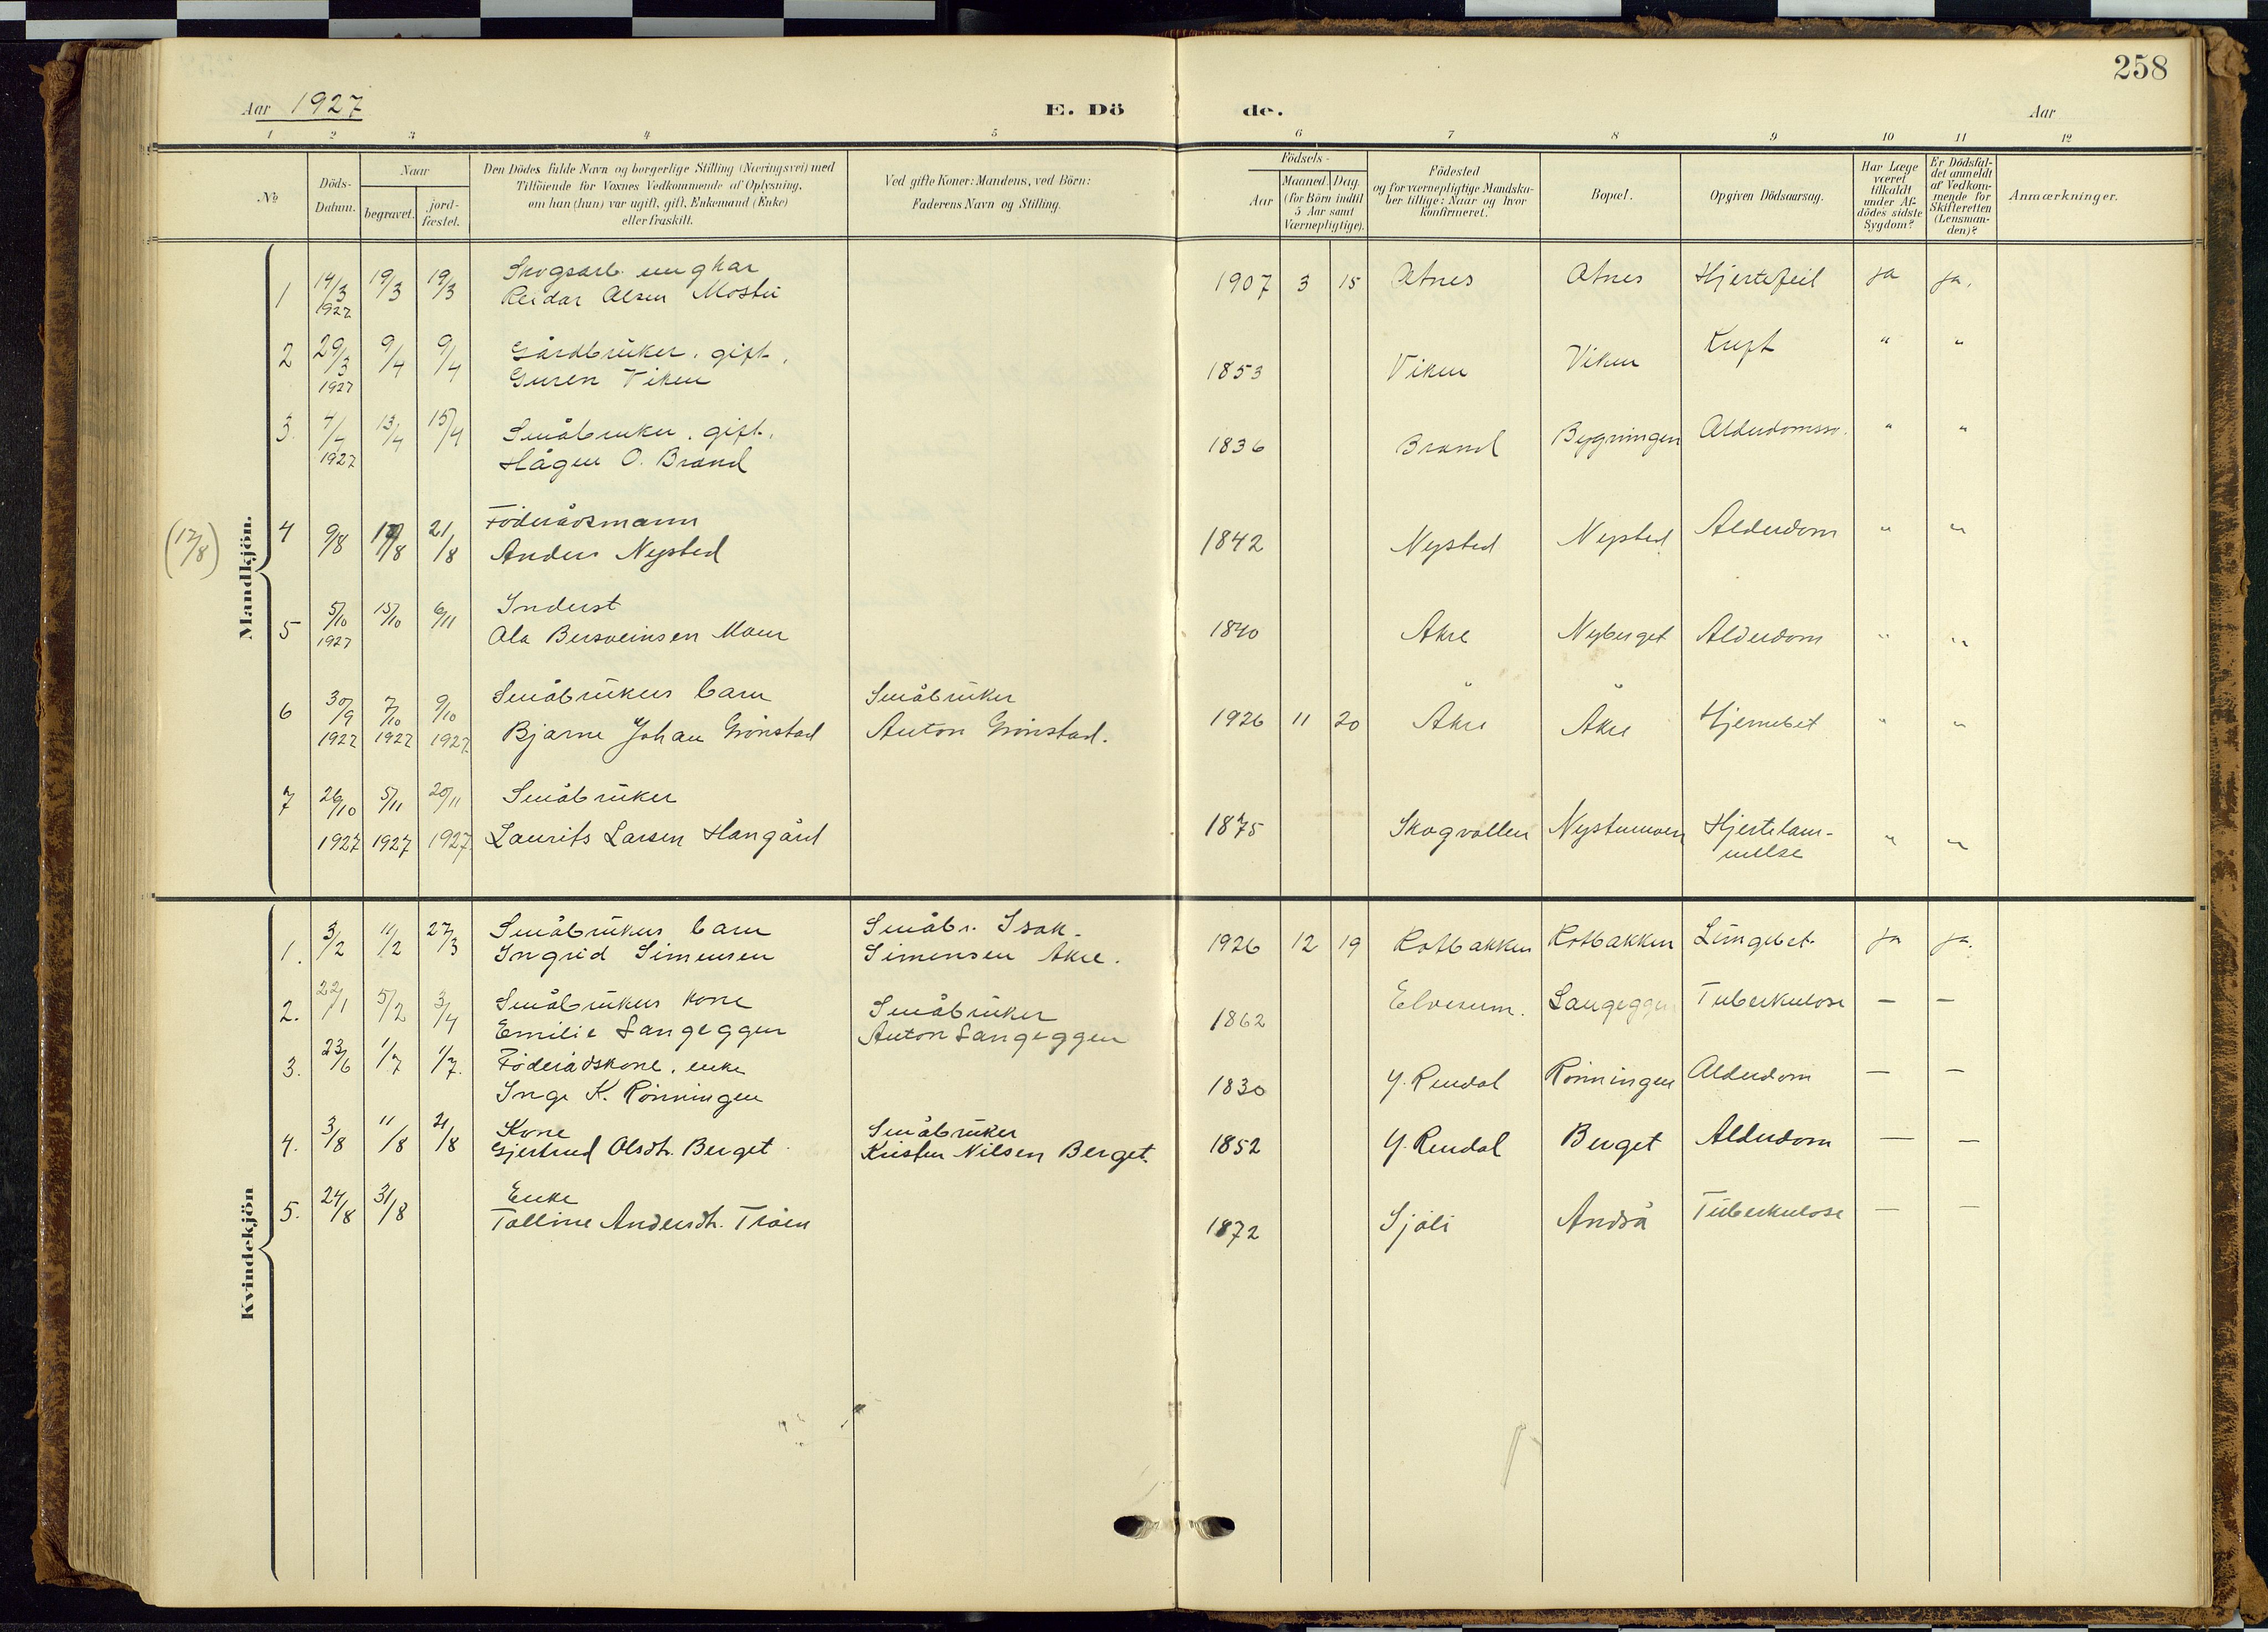 258
Aar 1927
E. Dö
de.
Aar
1 2 3 4 5 6 7 8 9 10 11 12
No
Döds-Datum.
Naar
begravet.
jord-fæstet.
Den Dödes fulde Navn og borgerlige Stilling (Næringsvei) med
Tilföiende for Voxnes Vedkommende af Oplysning,
om han (hun) var ugift, gift, Enkemand (Enke)
eller fraskilt.
Ved gifte Koner: Mandens, ved Börn:
Faderens Navn og Stilling.
Födsels-
Aar
Maaned. Dag.
(for Börn indtil
5 Aar samt
Værnepligtige).
Födested
og for værnepligtige Mandska-
ber tillige: Naar og hvor
konfirmeret.
Bopæl.
Opgiven Dödsaarsag.
Har Læge
været
tilkaldt
under Af-
dödes sidste
Sygdom?
Er Dödsfal-
det anmeldt
af Vedkom-
mende for
Skifteretten
(Lensman-
den)?
Anmærkninger.
Mandkjön.
1 14/3 1927 19/3 19/3 Skogsarb. ungkar
Reidar Olsen Mostu 1907 3 15 Atnes Atnes Hjertefeil ja ja.
2 29/3 1927 9/4 9/4 Gårdbruker. gift.
Guren Viken 1853 Viken Viken Kreft " "
3. 4/4 1927 13/4 15/4 Småbruker. gift.
Hågen O. Brænd 1836 Brænd Bygningen Alderdomssv. " "
(17/8) 4 9/8 17/8 21/8 Föderådsmann
Anders Nysted 1842 Nysted Nysted Alderdom " "
5 5/10 1927 15/10 6/11 Inderst
Ola Bersveinsen Moen 1840 Akre Nyberget Alderdom " "
6 30/9 1927 7/10 1927 9/10 1927 Småbrukers barn
Bjarne Johan Grönstad
Småbruker
Anton Grönstad. 1926 11 20 Åkre Åkre Hjernebet " "
7 26/10 1927 5/11 1927 20/11 1927 Småbruker
Laurits Larsen Hangård 1875 Skogvollen Nystumoen Hjertelam-
melse " "
Kvindekjön
1. 3/2 11/2 27/3 Småbrukers barn
Ingrid Simensen
Småbr. Isak
Simensen Akre. 1926 12 19 Kolbakken Kolbakken Lungebet. ja ja.
2. 22/1 5/2 3/4 Småbrukers kone
Emilie Langeggen
Småbruker
Anton Langeggen 1862 Elverum. Langeggen Tuberkulose — —
3. 23/6 1/7 1/7. Föderådskone, enke
Inge K. Rönningen 1830 Y. Rendal Rönningen Alderdom — —
4. 3/8 11/8 21/8 Kone
Gjertrud Olsdt. Berget
Småbruker
Kristen Nilsen Berget. 1852 Y. Rendal Berget Alderdom — —
5. 24/8 31/8 Enke
Talline Andersdt. Tråen 1872 Sjöli Andrå Tuberkulose — —